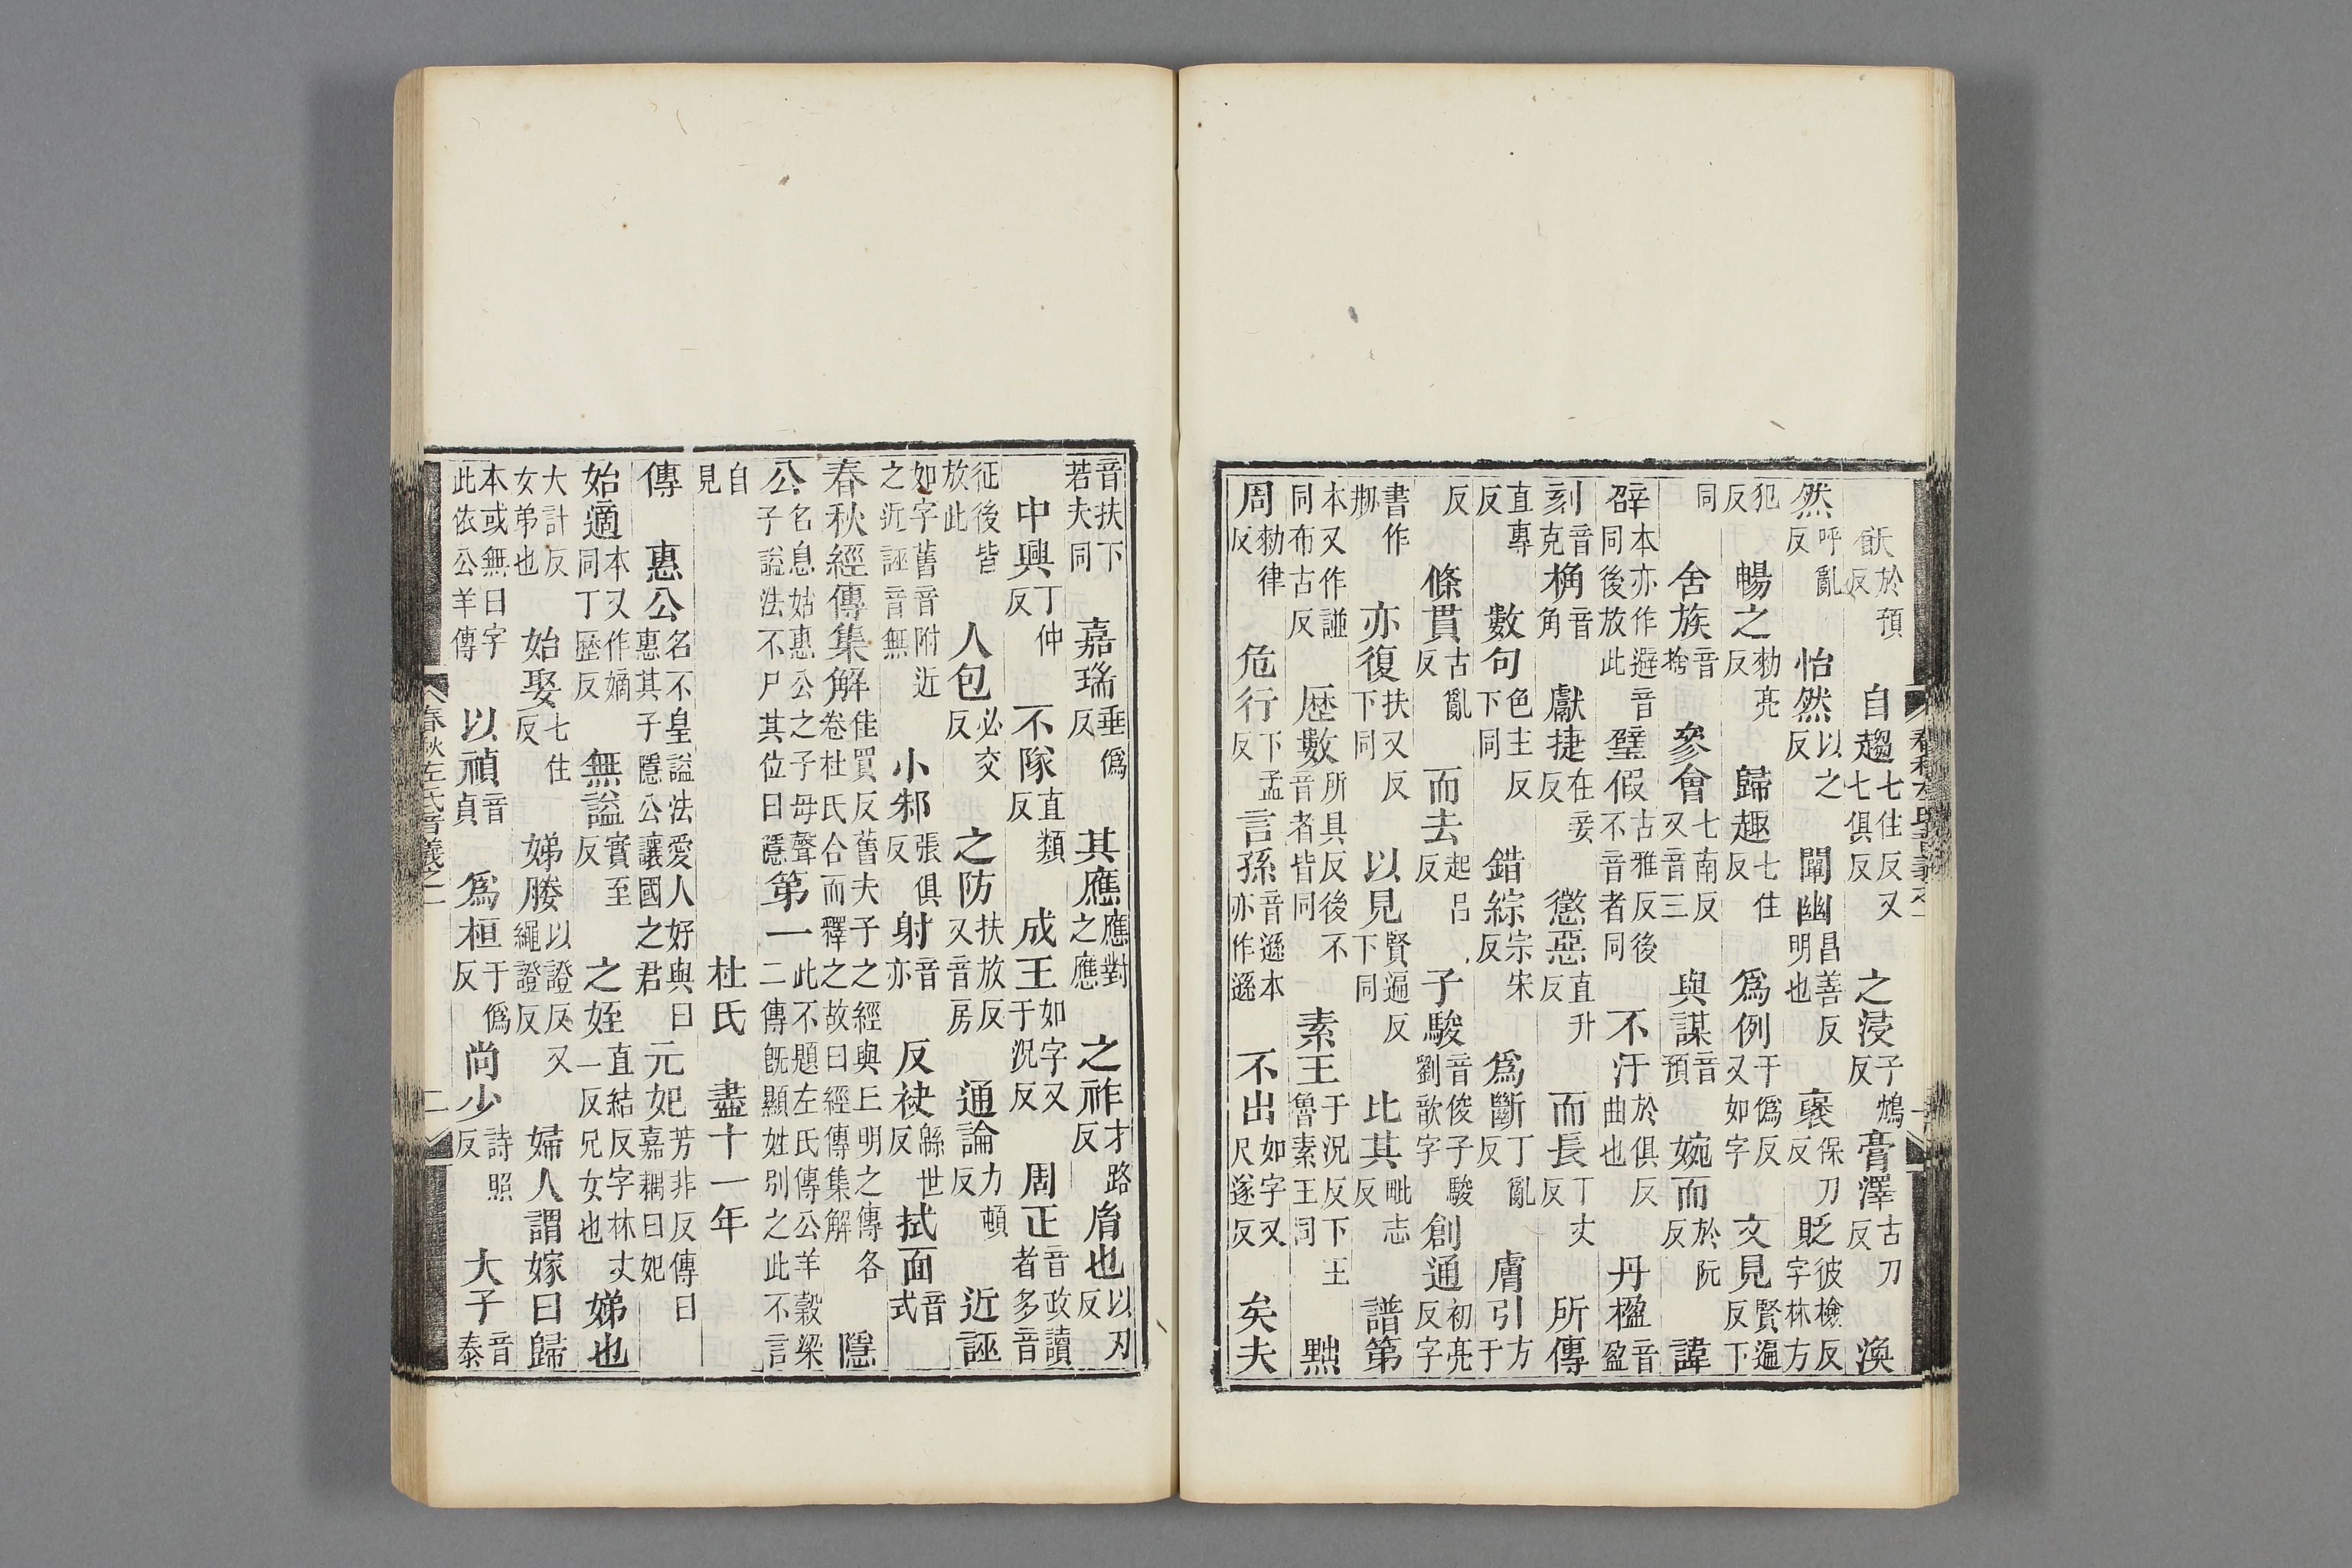 飫於預反 自趨七住反又七俱反 之浸子鴆反 膏澤古刀反 渙
然呼亂反 怡然以之反 闡幽昌善反明也 襃保刀反 貶彼檢反字林方
犯反 暢之勑亮反 歸趣七住反 爲例于僞反又如字 文見賢遍反下
同 舍族音捨 參會七南反又音三 與謀音預 婉而於阮反 諱
辟本亦作避音同後放此 璧假古雅反後不音者同 不汙於俱反曲也 丹楹音盈
刻音克 桷音角 獻捷在妾反 懲惡直升反 而長丁丈反 所傳
直專反 數句色主反下同 錯綜宗宋反 爲斷丁亂反 膚引方于
反 條貫古亂反 而去起呂反 子駿音俊子駿劉歆字 創通初亮反字
書作刱 亦復扶又反下同 以見賢遍反下同 比其毗志反 譜第
本又作諩同布古反 歷數所具反後不音者皆同 素王于況反下王魯素王同 黜
周勑律反 危行下孟反 言孫音遜本亦作遜 不出如字又尺遂反 矣夫
音扶下若夫同 嘉瑞垂僞反 其應應對之應 之祚才路反 胤也以刃反
中興丁仲反 不隊直類反 成王如字又于況反 周正音政讀者多音
征後皆放此 人包必交反 之防扶放反又音房 通論力頓反 近誣
如字舊音附近之近誣音無 小邾張俱反 射音亦 反袂緜世反 拭面音式
春秋經傳集解佳買反舊夫子之經與丘明之傳各卷杜氏合而釋之故曰經傳集解 隱
公名息姑惠公之子母聲子謚法不尸其位曰隱 第一此不題左氏傳公羊穀梁二傳旣顯姓別之此不言
自見 杜氏 盡十一年
傳 惠公名不皇謚法愛人好與曰惠其子隱公讓國之君 元妃芳非反傳曰嘉耦曰妃
始適本又作嫡同丁歷反 無謚實至反 之姪直結反字林丈一反兄女也 娣也
大計反女弟也 始娶七住反 娣媵以證反又繩證反 婦人謂嫁曰歸
本或無曰字此依公羊傳 以禎音貞 爲桓于僞反 尚少詩照反 大子音泰
春秋左氏音義之一 二